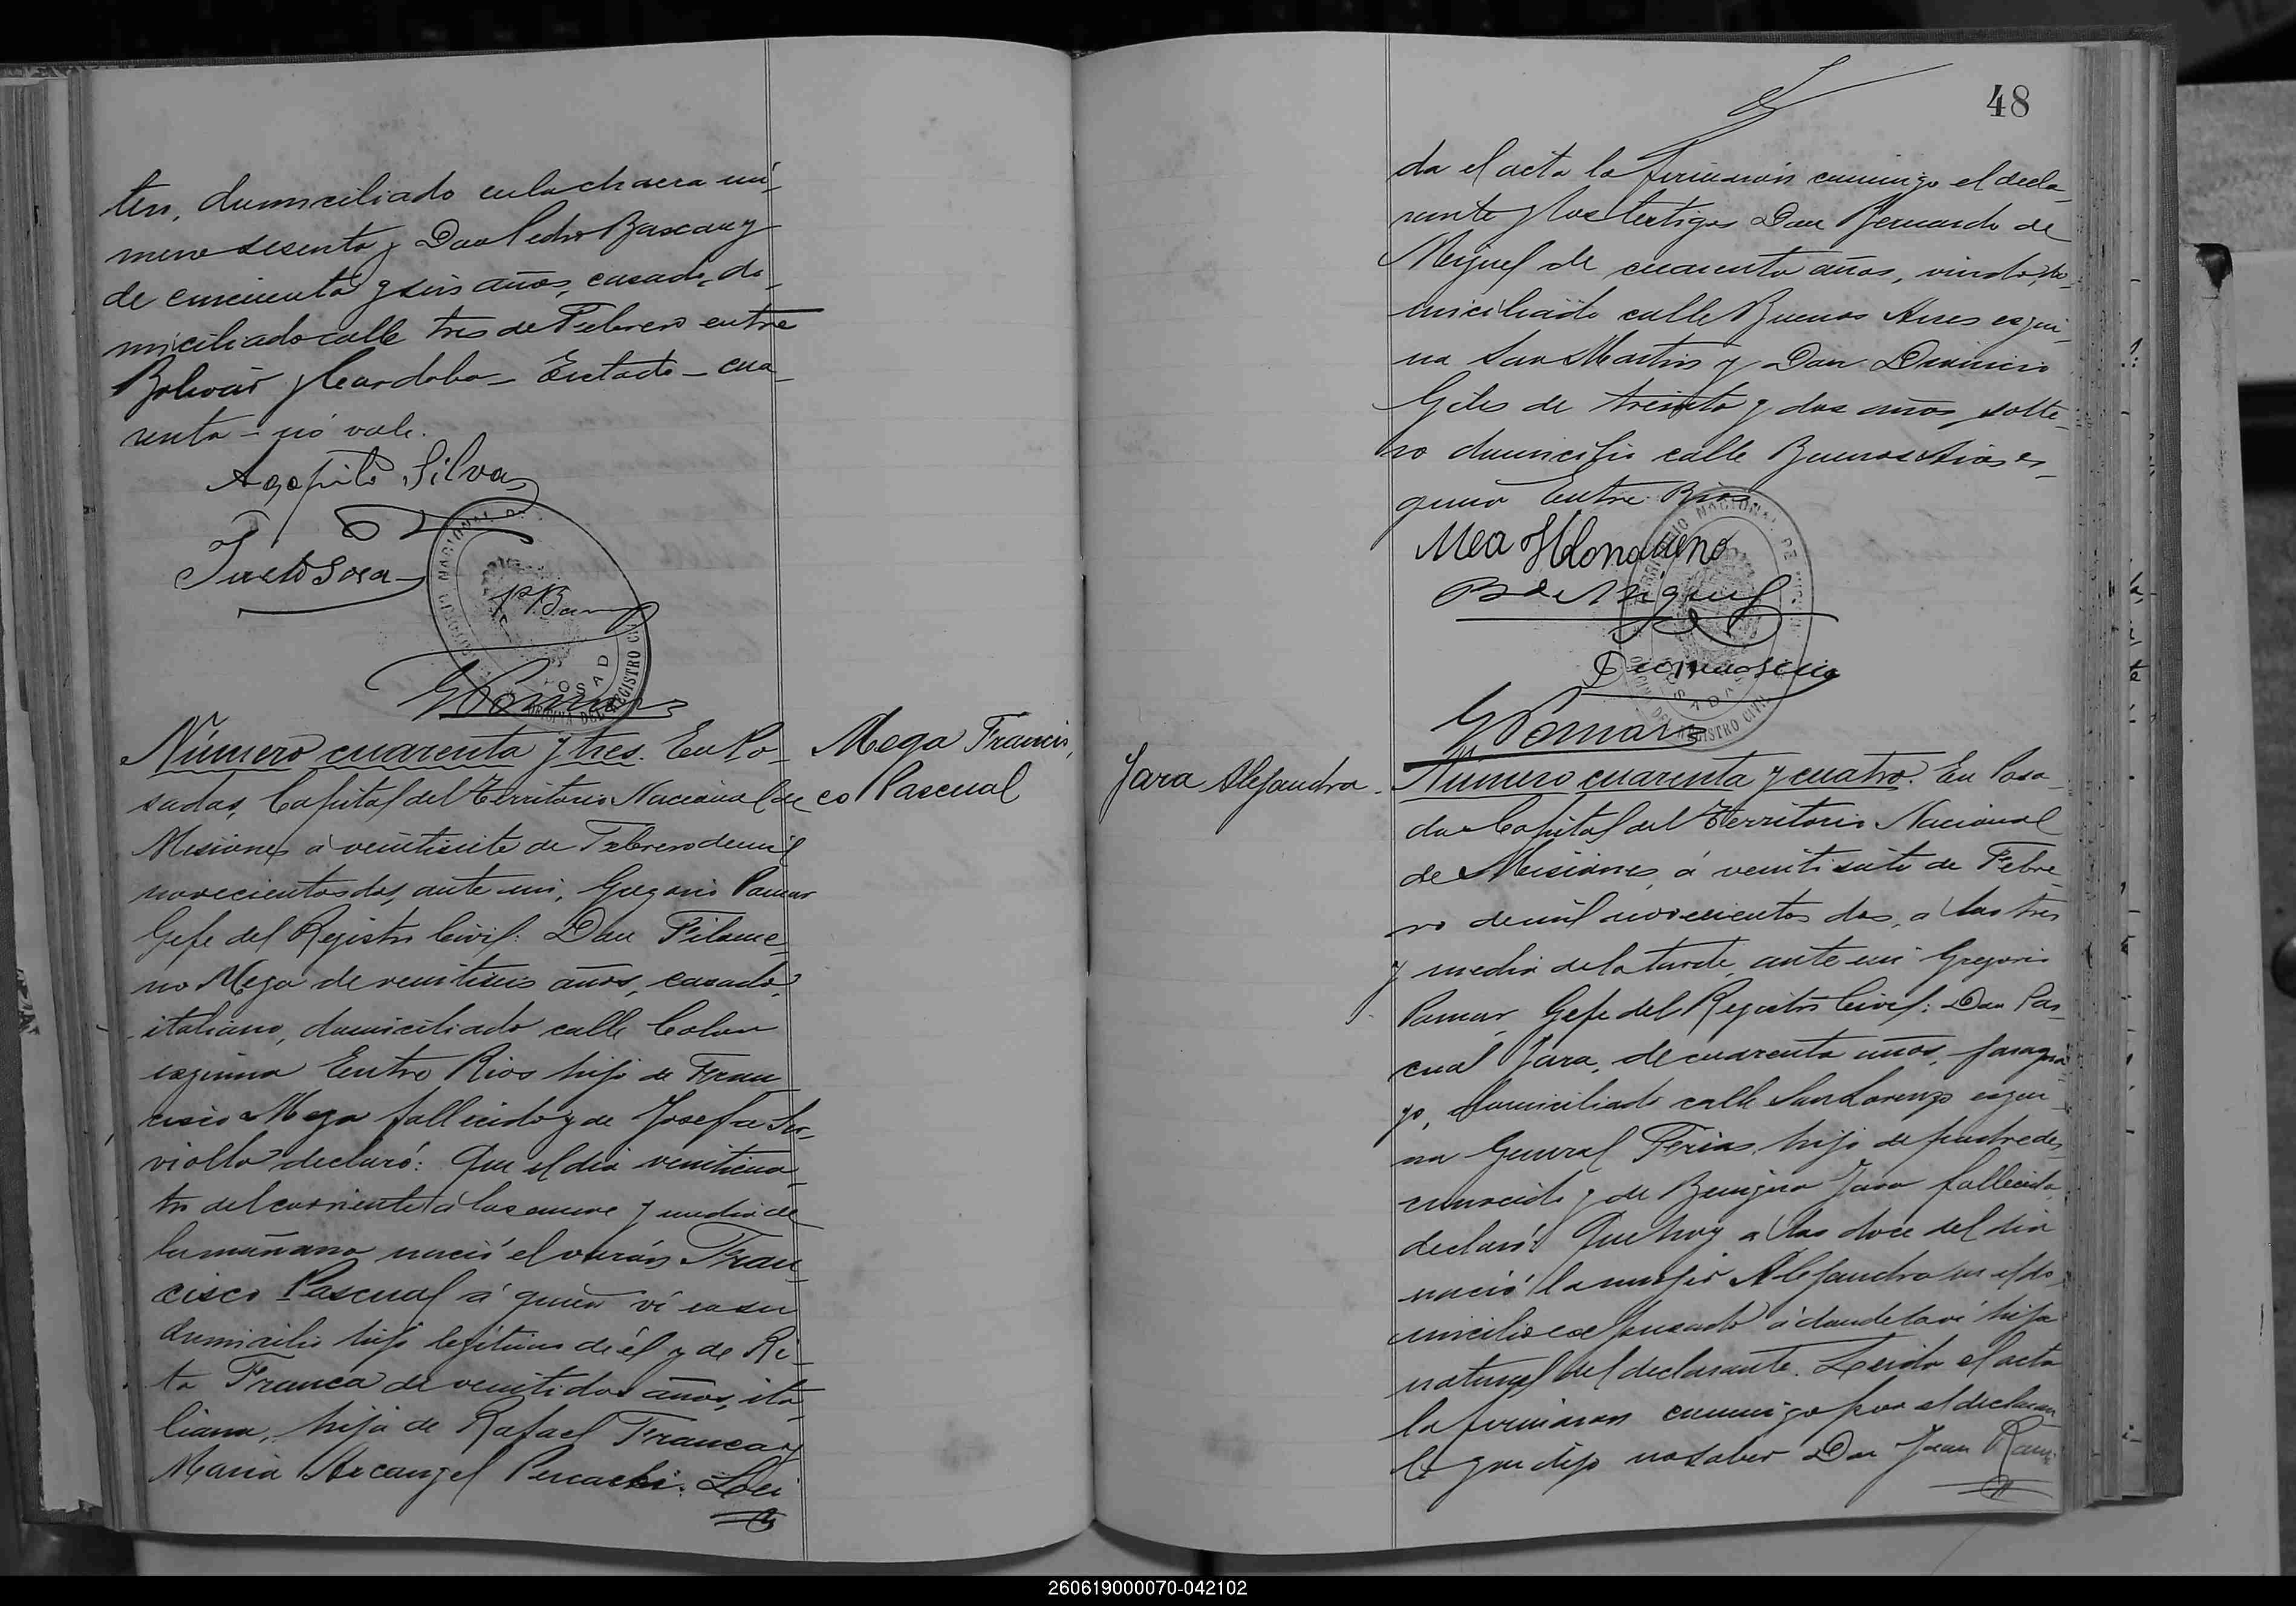 ten, domiciliado en la chacra nú-
mero sesenta y Don Pedro Bascary
de cincuenta y seis años, casado, do-
miciliado calle tres de Febrero entre
Bolivar y Cordoba - Entado - cua-
renta - nó vale.
Agapito Silva
Justo Sosa
P. Bascary
G Pomar
Número cuarenta y tres. En Po-
sadas, Capital del Territorio Nacional de
Misiones á veintisiete de Febrero de mil
novecientos dos, ante mi, Gregorio Pomar
Gefe del Registro Civil: Don Filome-
no Mega de veintiseis años, casado,
italiano, domiciliado calle Colon
esquina Entre Rios hijo de Fran-
cisco Mega fallecido y de Josefa
declaró: Que el dia veinticua-
tro del corriente á las nueve y media de
la mañana nació el varón Fran-
cisco Pascual á quien ví en su
domicilio hijo legítimo de él y de Ri-
ta Franca de veintidos años, ita-
liana, hija de Rafael Franca y
Maria Arcangel Lei-
Mega Francis-
co Pascual
48
da el acta la firmaron conmigo el decla-
rante y los testigos Don Bernardo de
Miguel de cuarenta años, viudo, do-
miciliado calle Buenos Aires esqui-
na San Martin y Don Dionicio
Giles de treinta y dos años solte-
ro domicilio calle Buenos Aires es-
quina Entre Rios
Mea Filomeno
B de Miguel
G Pomar
Jara Alejandra.
Número cuarenta y cuatro. En Posa-
das Capital del Territorio Nacional
de Misiones, á veintisiete de Febre-
ro de mil novecientos dos, a las tres
y media de la tarde, ante mi Gregorio
Pomar, Gefe del Registro Civil: Don Pas-
cual Jara, de cuarenta años, paragua-
yo, domiciliado calle San Lorenzo esqui-
na General Frias, hijo de padre des-
conocido y de Benigna Jara fallecida,
declaró: Que hoy a las doce del dia
nació la mujer Alejandra en el do-
micilio espresado á donde la ví hija
natural del declarante. Leida el acta
la firmaron conmigo por el declaran-
te que dijo no saber Don Juan Rami
260619000070-042102